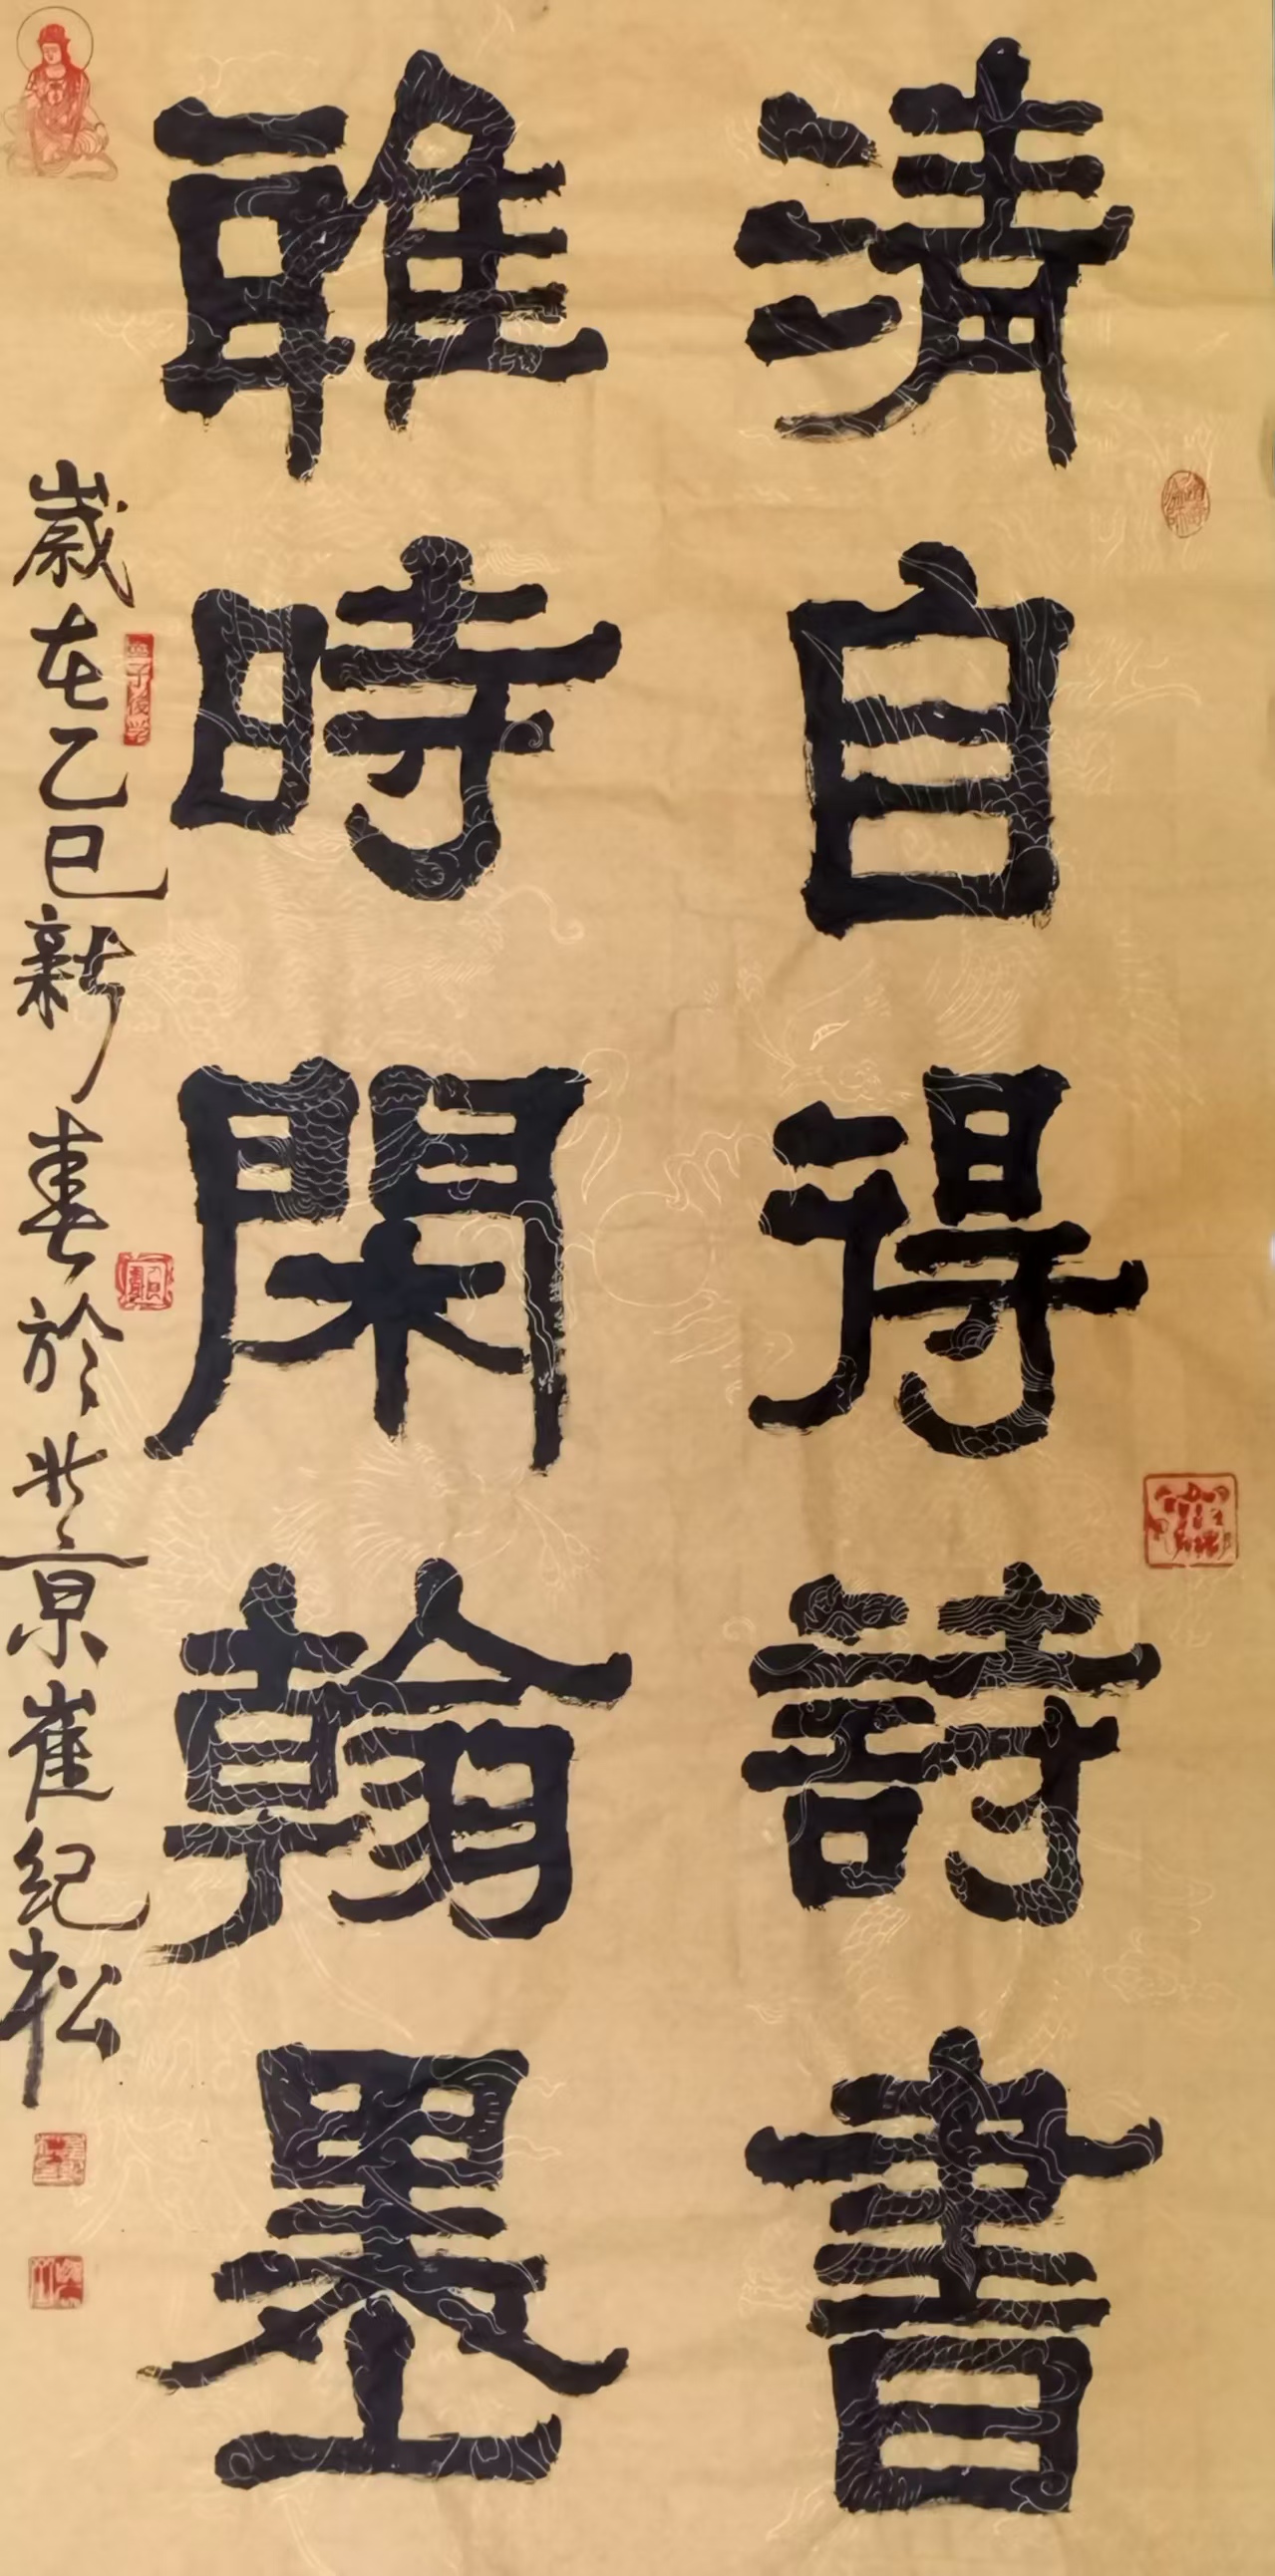 清自得詩書
雅時閑翰墨
歲在乙巳新春於北京崔紀松